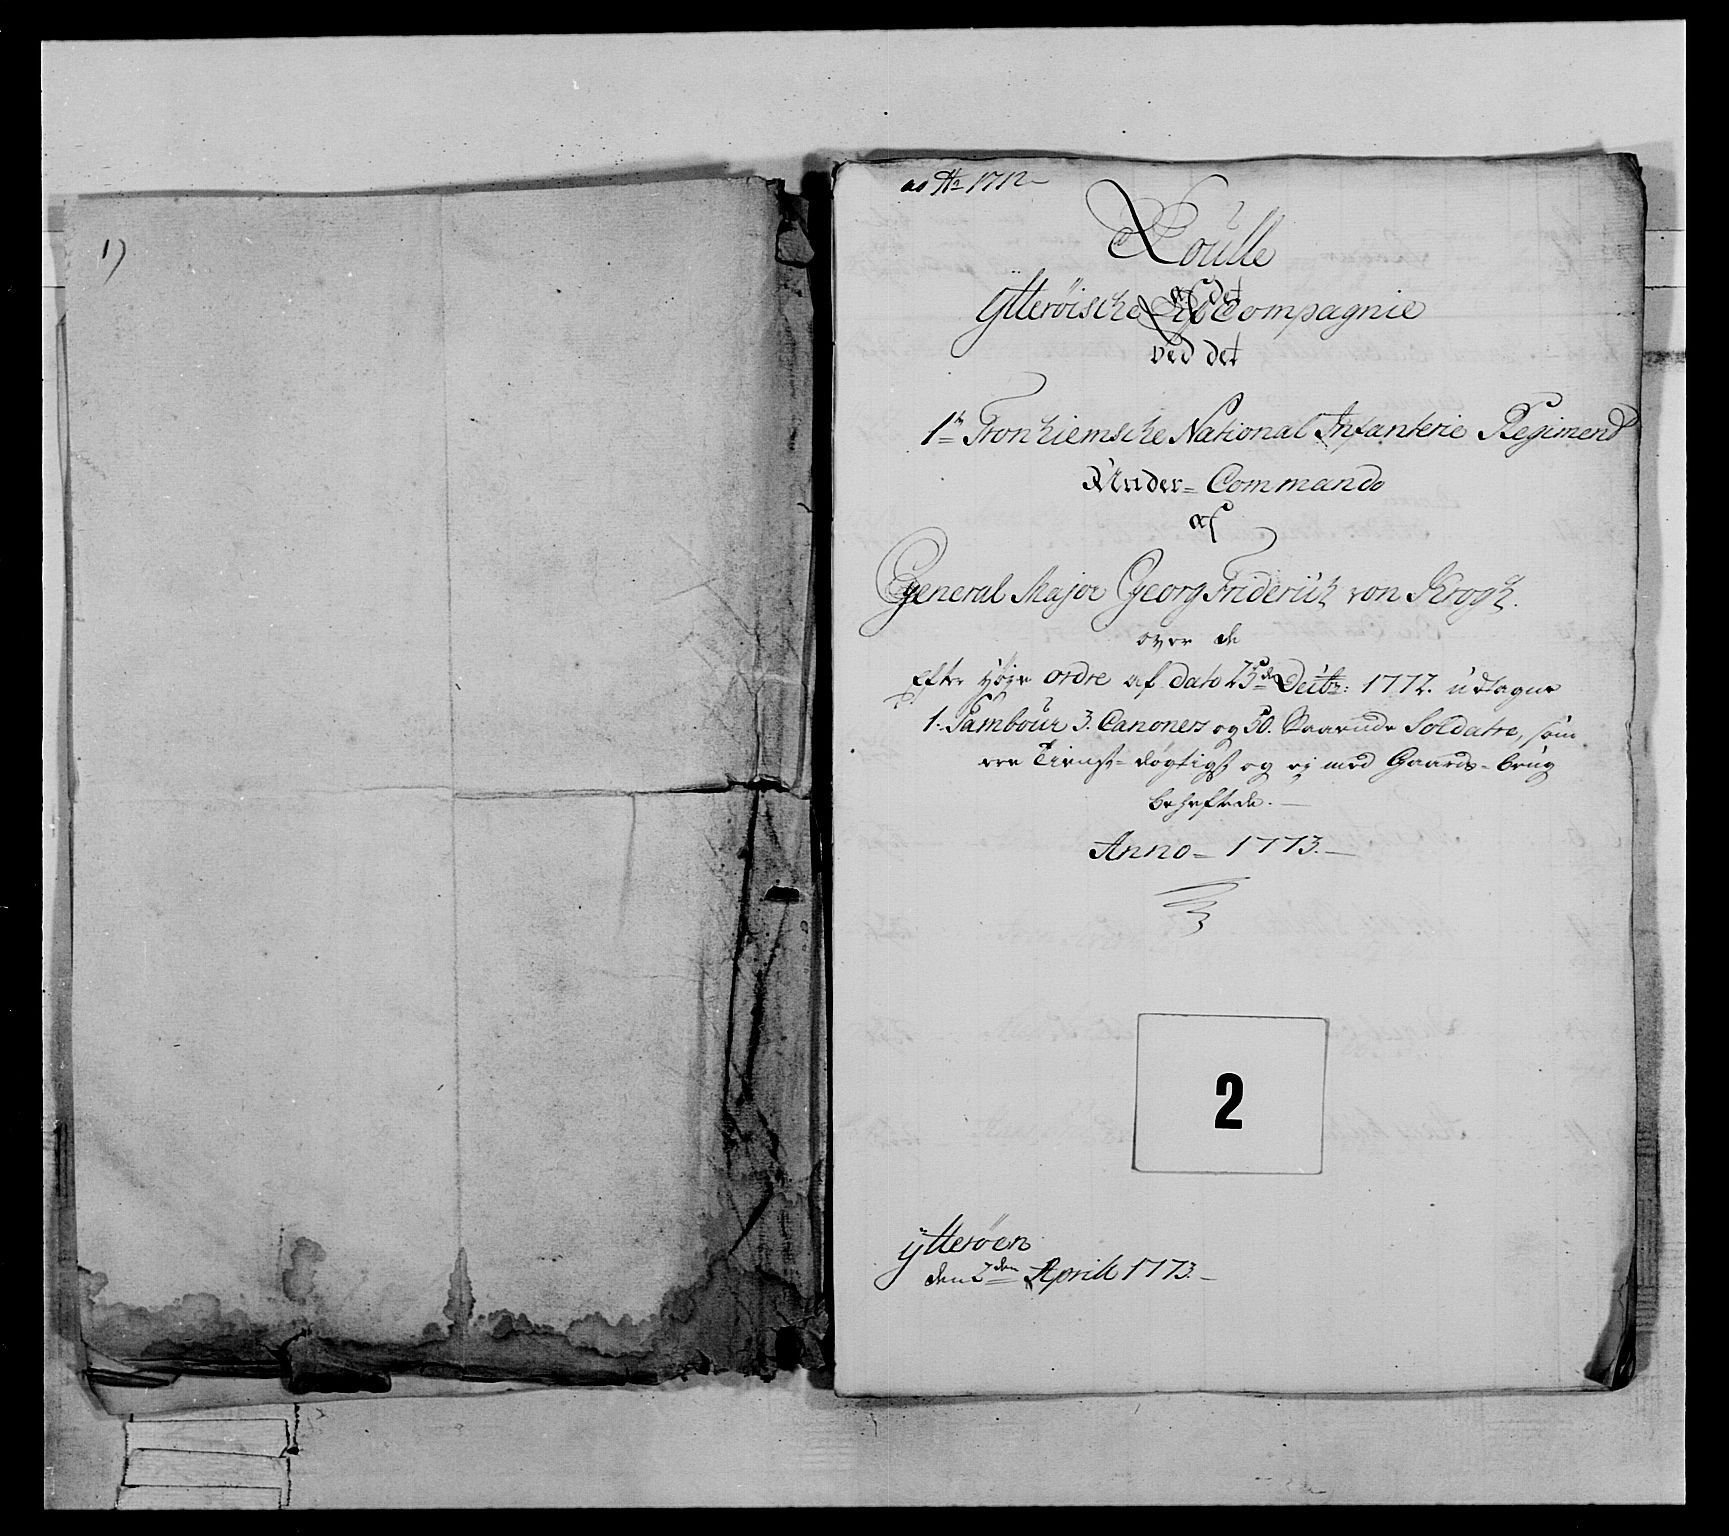 1)
ao 1772
Roulle
af det
Ytterøische Compagnie
ved det
1te Tronhiemsche National Infanterie Regimend
Under Commando
af
General Major Georg Friderich von Krogh.
over de
efter höje ordre af dato 25de Decbr: 1772. udtagne
1. Tambour 3. Canoners og 50. Soldater, som
ere Tienst-døgtigst og ej med Gaards-brug
beheftede.
Anno 1773.
2
Ytterøen
den 2den Aprill 1773.